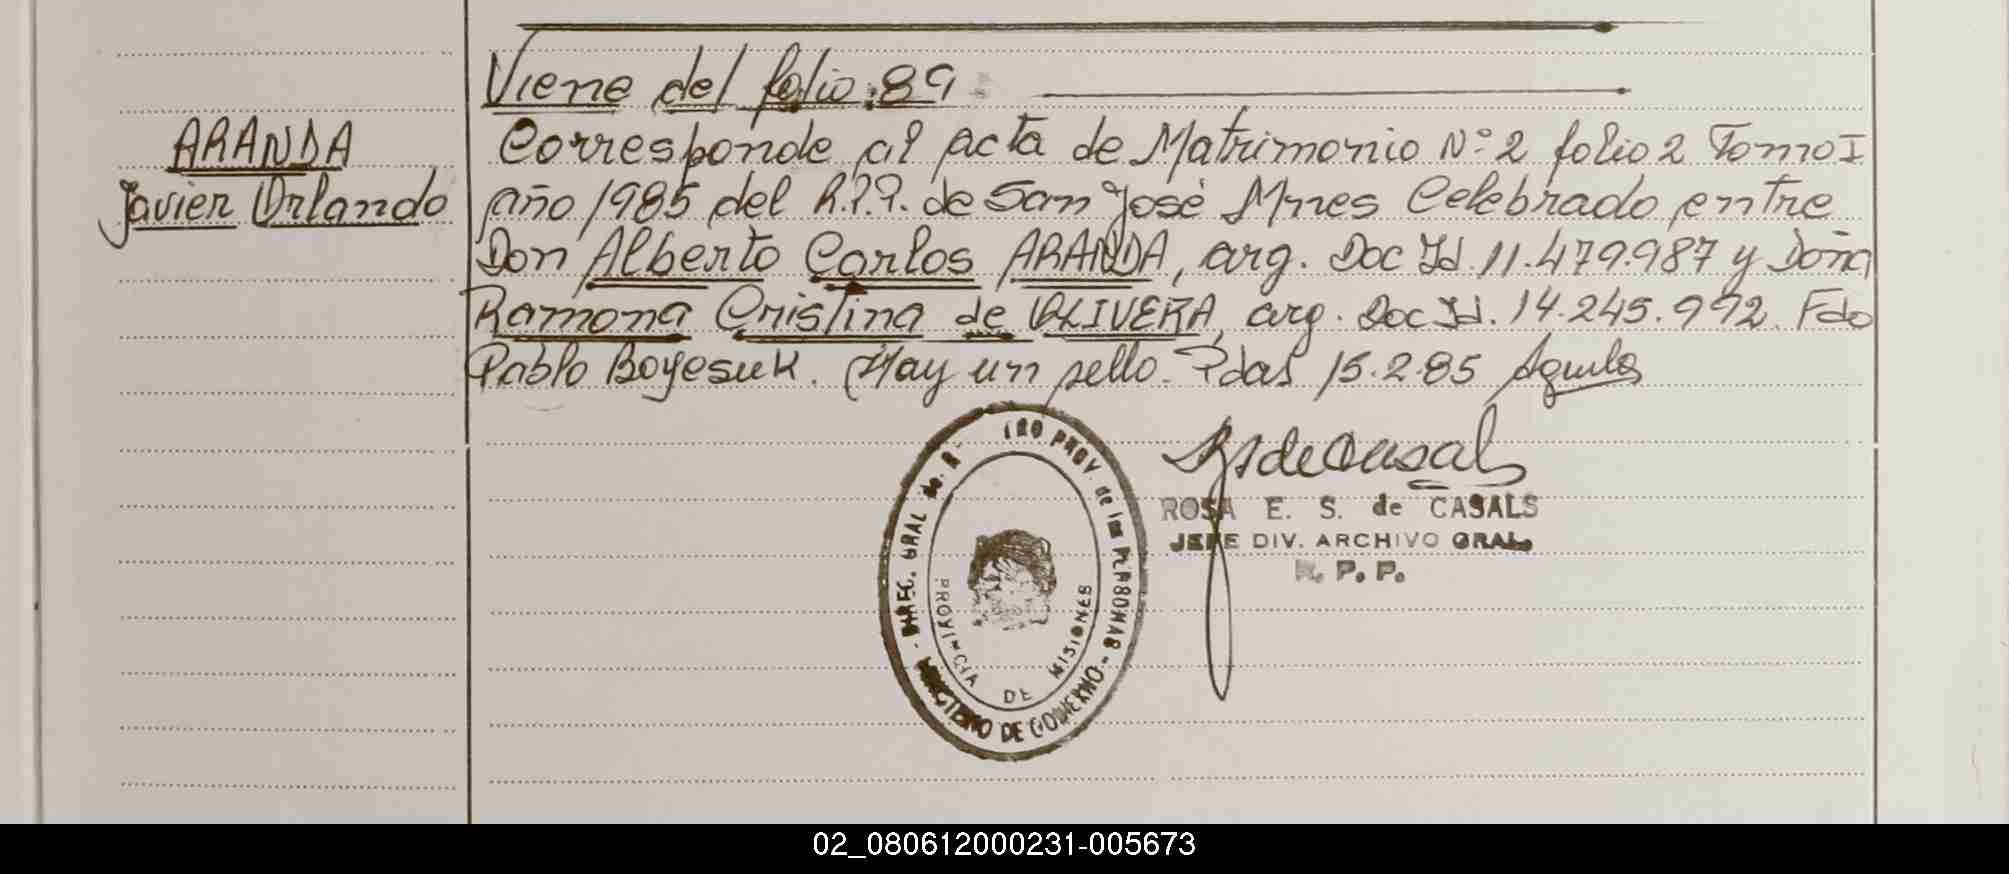 Viene del folio: 89
ARANDA
Javier Orlando
Corresponde al acta de Matrimonio Nº 2 folio 2 Tomo I
año 1985 del R.P.P. de San José Mnes Celebrado entre
Don Alberto Carlos ARANDA, arg. Doc Id. 11.479.987 y Doña
Ramona Cristina de OLIVERA, arg. Doc Id. 14.245.992. Fdo
Pablo Boyesuk. (Hay un sello. Pdas 15.2.85
ROSA E. S. de CASALS
JEFE DIV. ARCHIVO GRAL.
R. P. P.
DIREC. GRAL de PROV. de las PERSONAS -
MINISTERIO DE GOBIERNO
PROVINCIA DE MISIONES
02_080612000231-005673